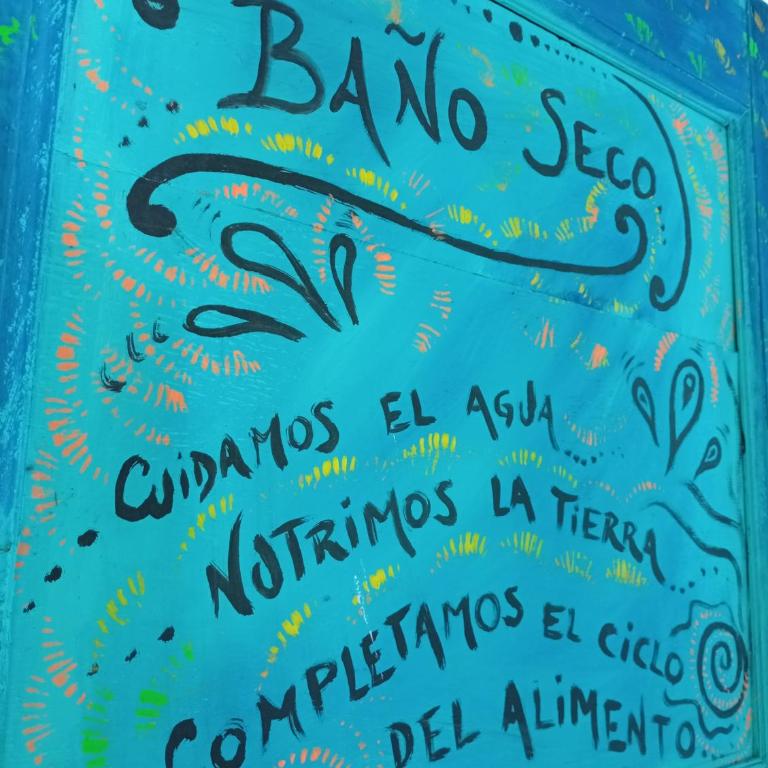 BAÑO SECO
CUIDAMOS EL AGUA
NUTRIMOS LA TIERRA
COMPLETAMOS EL CICLO
DEL ALIMENTO